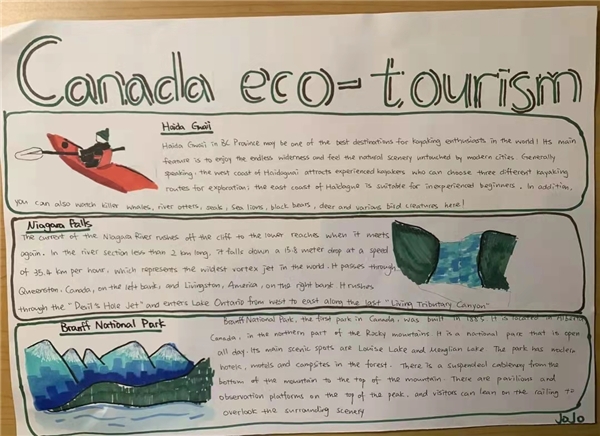 Canada eco-tourism
Haida Gwaii
Haida Gwaii in BC Province may be one of the best destinations for kayaking enthusiasts in the world! Its main
feature is to enjoy the endless wilderness and feel the natural scenery untouched by modern cities. Generally
speaking, the west coast of Haidaguai attracts experienced kayakers who can choose three different kayaking
routes for exploration; the east coast of Haidague is suitable for inexperienced beginners. In addition,
you can also watch killer whales, river otters, seals, sea lions, black bears, deer and various bird creatures here!
Niagara Falls
The current of the Niagara River rushes off the cliff to the lower reaches when it meets
again. In the river section less than 2 km long, it falls down a 15.8 meter drop at a speed
of 35.4 km per hour, which represents the wildest vortex jet in the world. It passes through
Queenston, Canada, on the left bank, and Livingston, America, on the right bank. It rushes
through the "Devil's Hole Jet" and enters Lake Ontario from west to east along the last "Living Tributary Canyon"
Branff National Park
Branff National Park, the first park in Canada, was built in 1885. It is located in Alberta
Canada, in the northern part of the Rocky mountains. It is a national park that is open
all day. Its main scenic spots are Louise Lake and Menglian Lake. The park has modern
hotels, motels and campsites in the forest. There is a suspended cableway from the
bottom of the mountain to the top of the mountain. There are pavilions and
observation platforms on the top of the peak, and visitors can lean on the railing to
overlook the surrounding scenery
JoJo